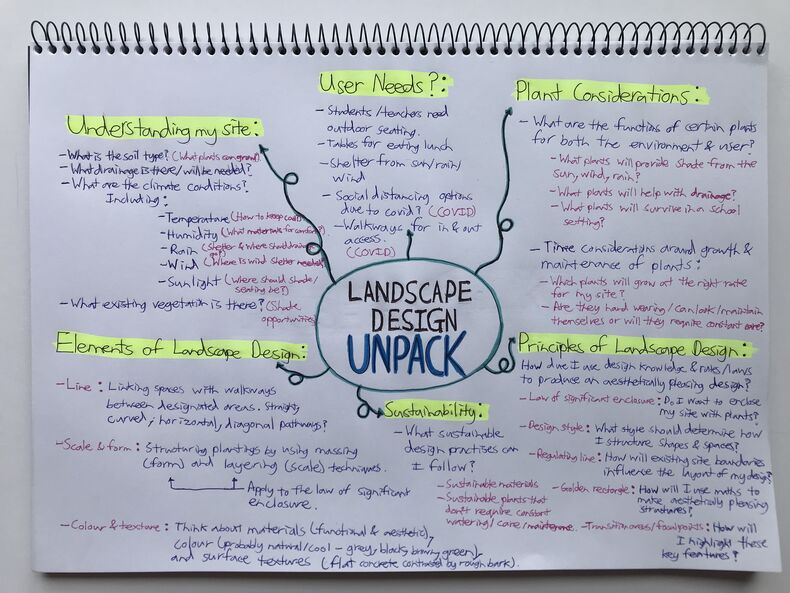 LANDSCAPE
DESIGN
UNPACK
Understanding my site:
- What is the soil type? (What plants can grow)
- What drainage is there/will be needed?
- What are the climate conditions?
Including:
- Temperature (How to keep cool)
- Humidity (What materials for
- Rain (Shelter & where should drainage
go?)
- Wind (Where is wind shelter needed)
- Sunlight (Where should shade/
seating be?)
- What existing vegetation is there? (Shade
opportunities
User Needs?:
- Students/teachers need
outdoor seating.
- Tables for eating lunch
- Shelter from sun/rain/
wind
- Social distancing options
due to covid? (COVID)
- Walkways for in & out
access.
(COVID)
Plant Considerations:
- What are the functions of certain plants
for both the environment & user?
- What plants will provide shade from the
sun, wind, rain?
- What plants will help with drainage?
- What plants will survive in a school
setting?
- Time considerations around growth &
maintenance of plants:
- Which plants will grow at the right rate
for my site?
- Are they hard wearing/can look/maintain
themselves or will they require constant care?
Elements of Landscape Design:
- Line: Linking spaces with walkways
between designated areas. Straight,
curved, horizontal, diagonal pathways?
- Scale & form: Structuring plantings by using massing
(form) and layering (scale) techniques.
Apply to the law of significant
enclosure.
- Colour & texture: Think about materials (functional & aesthetic),
colour (probably natural/cool - grey, black, brown, green),
and surface textures (flat concrete contrasted by rough bark).
Sustainability:
- What sustainable
design practises can
I follow?
- Sustainable materials
- Sustainable plants that
don't require constant
watering/care/maintenance.
Principles of Landscape Design:
How due I use design knowledge & rules/laws
to produce an aesthetically pleasing design?
- Law of significant enclosure: Do I want to enclose
my site with plants?
- Design style: What style should determine how
I structure shapes & spaces?
- Regulating line: How will existing site boundaries
influence the layout of my design?
- Golden rectangle: How will I use maths to
make aesthetically pleasing
structures?
- Transition areas/focal points: How will
I highlight these
key features?